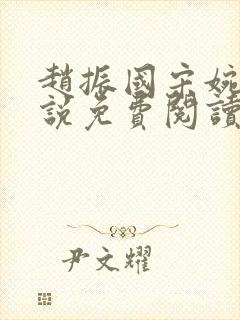 趙振國宋婉
說免費閱讀
尹文耀